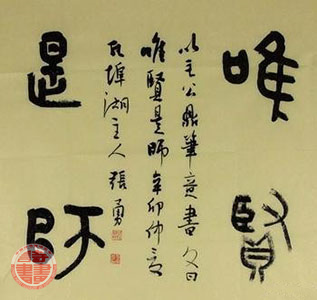 唯賢
是師
以毛公鼎筆意書
唯賢是師辛卯仲
瓦埠湖主人張勇